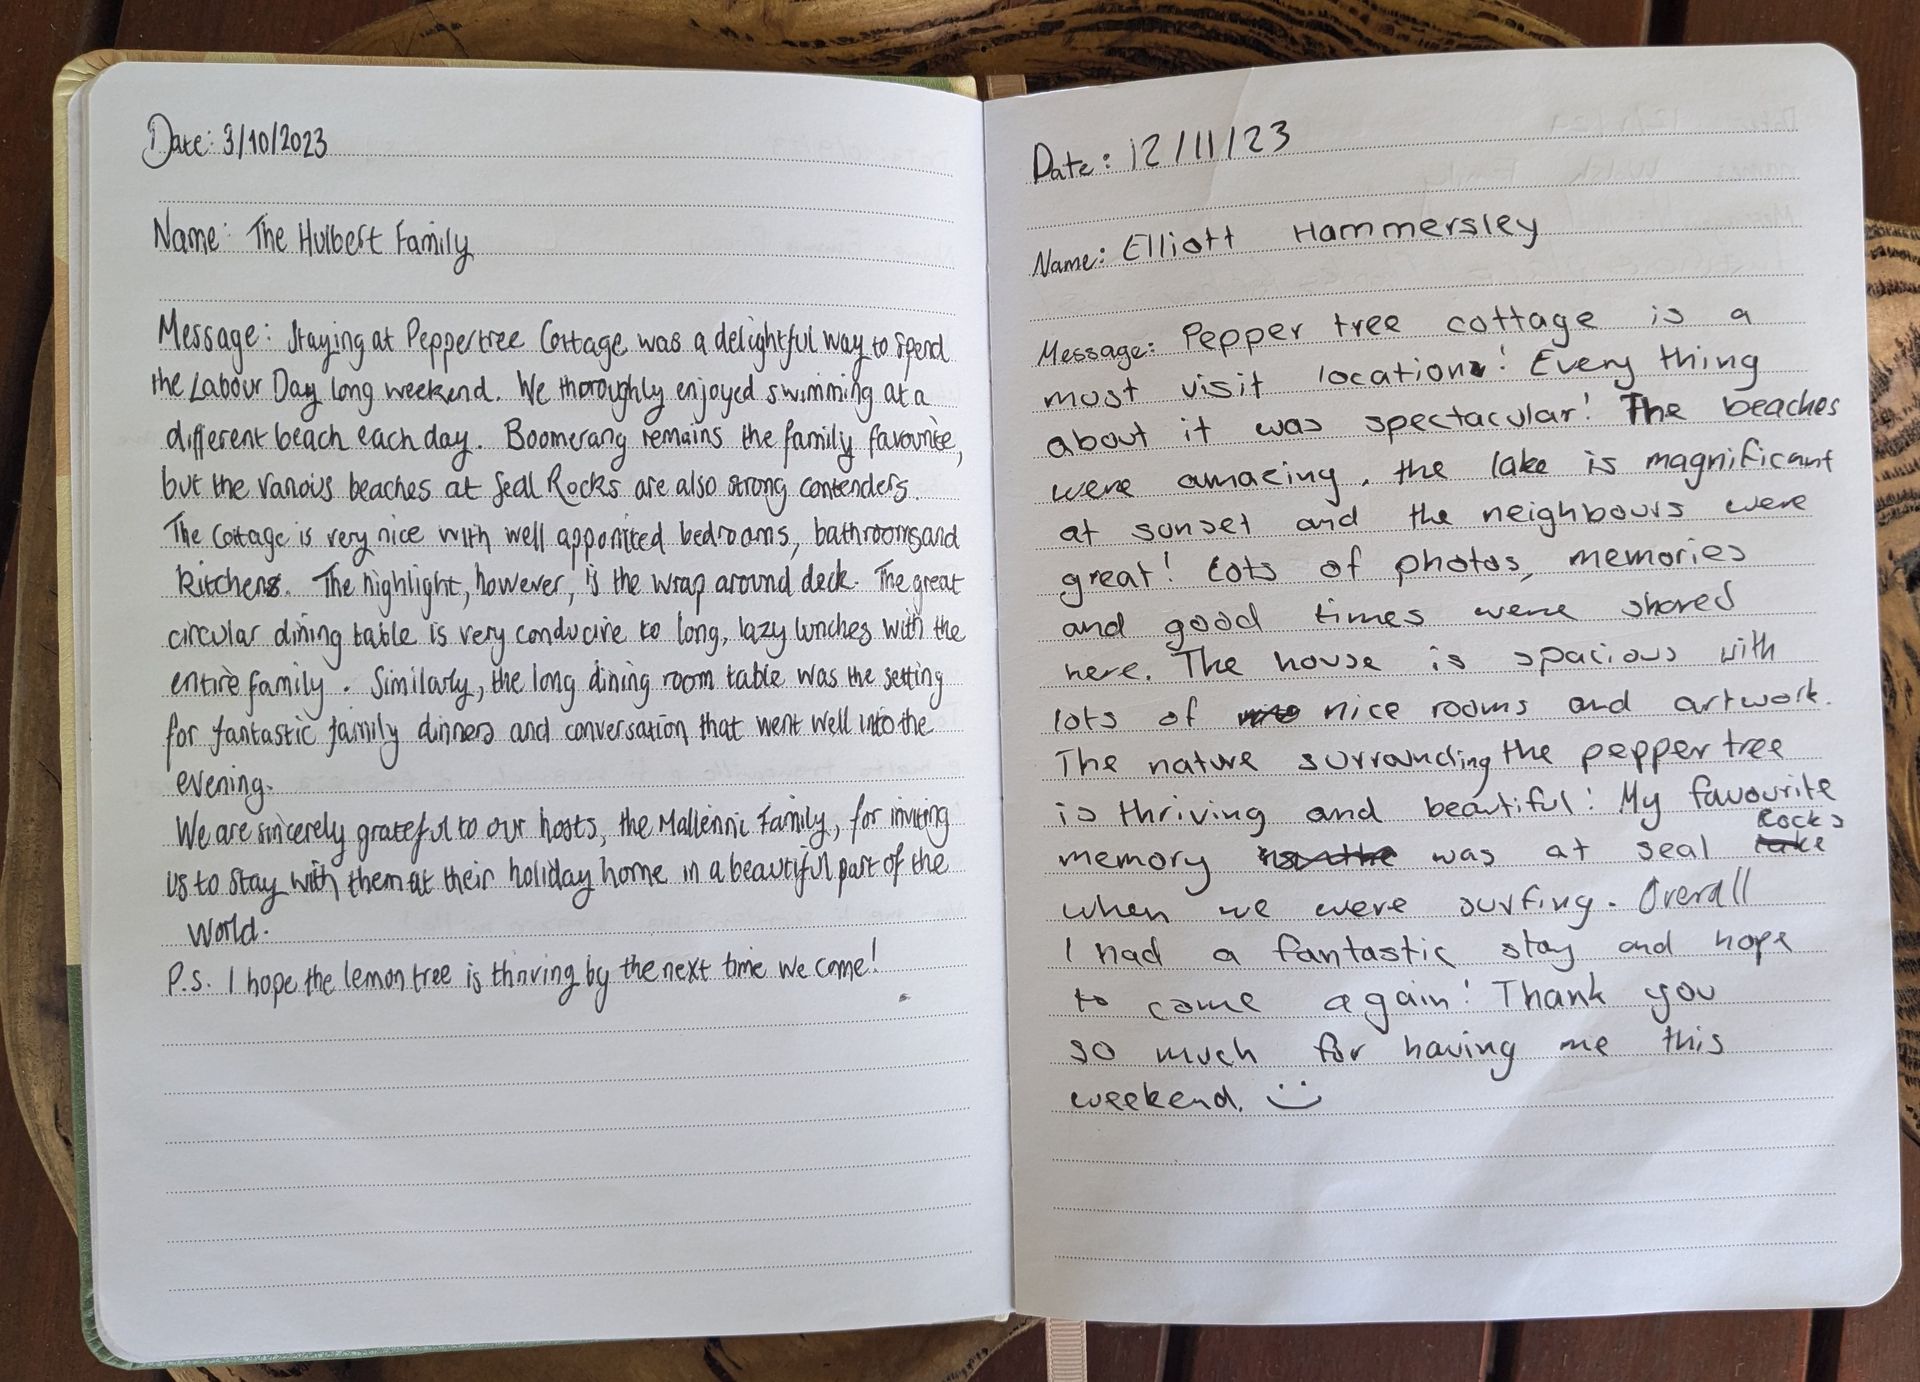 Date: 3/10/2023
Name: The Hulbert Family
Message: Staying at Peppertree Cottage was a delightful way to spend
the Labour Day long weekend. We thoroughly enjoyed swimming at a
different beach each day. Boomerang remains the family favourite,
but the various beaches at Seal Rocks are also strong contenders.
The Cottage is very nice with well apponited bedrooms, bathrooms and
kitchens. The highlight, however, is the wrap around deck. The great
circular dining table is very conducive to long, lazy lunches with the
entire family. Similarly, the long dining room table was the setting
for fantastic family dinners and conversation that went well into the
evening.
We are sincerely grateful to our hosts, the Family, for inviting
us to stay with them at their holiday home in a beautiful part of the
World.
P.s. I hope the lemon tree is thriving by the next time we come!
Date: 12/11/23
Name: Elliott Hammersley
Message: Pepper tree cottage is a
must visit location! Every thing
about it was spectacular! The beaches
were amazing, the lake is magnificant
at sunset and the neighbours were
great! Lots of photos, memories
and good times were shared
here. The house is spacious with
lots of nice rooms and artwork.
The nature surrounding the pepper tree
is thriving and beautiful! My favourite
memory was at seal Rocks
when we were surfing. Overall
I had a fantastic stay and hope
to come again! Thank you
so much for having me this
weekend. :)